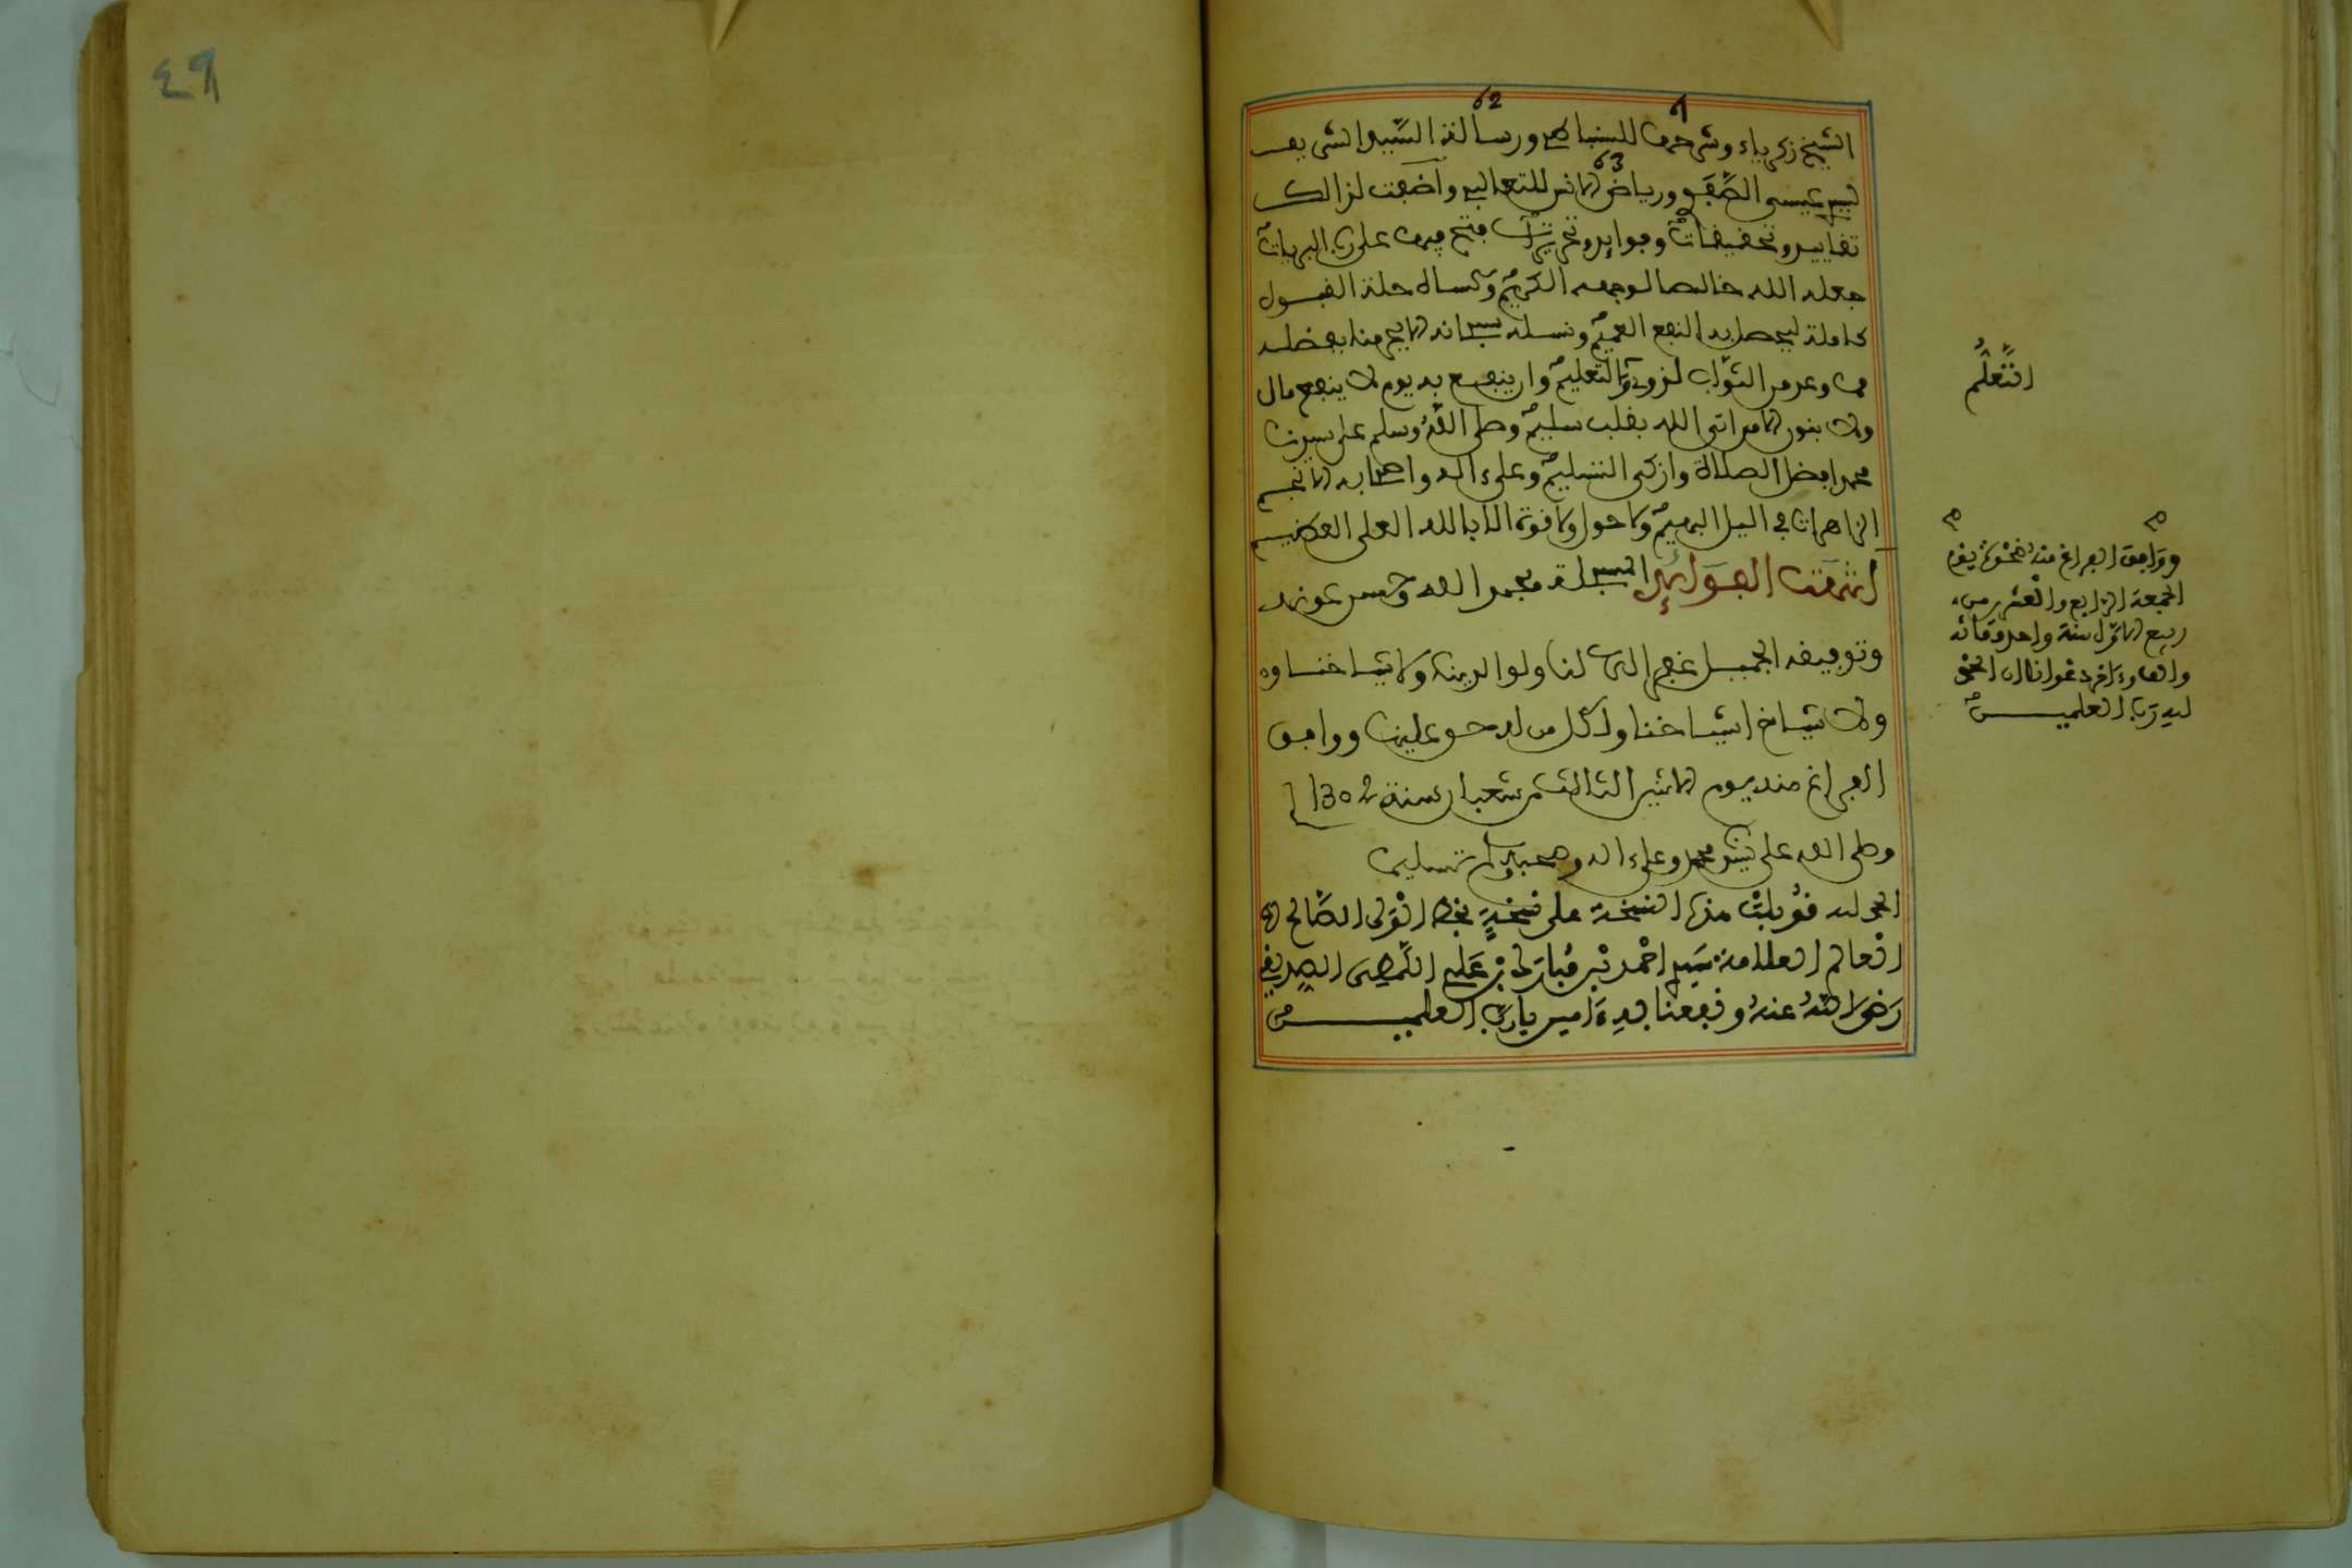 61 62
الشيخ زكرياء وشرحها للسنباطي ورسالة السيد الشريف
سيدي عيسى الصفوي ورياض الانس للثعالبي واضفت لذالك
63
تقاييد وتحقيقات وفوايد وتحريرات فتح بها على رب البريات
جعله الله خالصا لوجهه الكريم وكساه حلة القبول
كاملة ليحصل به النفع العميم ونسئله سبحانه
وعد من الثواب لذوي التعليم وان ينفع به يوم لا ينفع مال
ولا بنون الا من اتى الله بقلب سليم وصلى الله وسلم على سيدنا
محمد افضل الصلاة وازكى التسليم وعلى ءاله واصحابه الانجم
الزاهرات في اليل البهيم ولا حول ولا قوة الا بالله العلي العظيم
انتهت الفوائد بحمد الله وحسن عونه
وتوفيقه الجميل غفر الله لنا ولوالدينا ولاشياخنا و
ولاشياخ اشياخنا ولكل من له حق علينا ووافق
الفراغ منه يوم الاثنين الثالث من شعبان سنة 1302
وصلى الله على محمد وعلى ءاله وصحبه وسلم تسليما
الحمد لله قوبلت هذه النسخة على نسخة بخط الولي الصالح
العالم العلامة سيدي احمد بن مبارك بن علي اللمطي الصديقي
رضي الله عنه ونفعنا به ءامين يارب العلمين
التعلم
ووافق الفراغ منه ضحوة يوم
الجمعة الرابع والعشرين من
ربيع الاول سنة واحد ومائة
والف وءاخر دعوانا ان الحمد
لله رب العلمين
٤٩